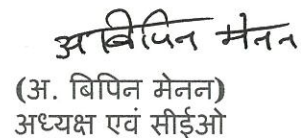 अ बिपिन मेनन
(अ. बिपिन मेनन)
अध्यक्ष एवं सीईओ